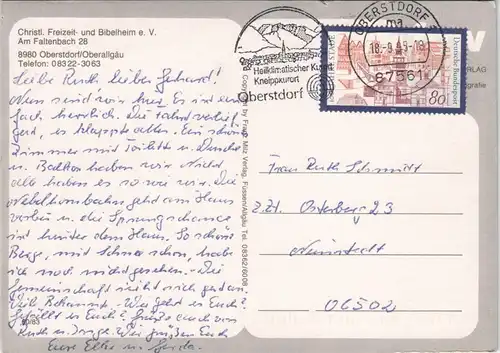 Christl. Freizeit- und Bibelheim e. V.
Am Faltenbach 28
8980 Oberstdorf/Oberallgäu
Telefon: 08322-3063
Liebe Ruth, lieber Gerhard!
Nun sind wir hier. Es ist ein-
fach herrlich. Die Fahrt verlief
gut, es klappte alles. Ein schönes
Zimmer mit Toilette u. Dusche
u. Balkon haben wir. Nicht
alle haben es so wie wir. Die
Nebelhornbahn geht am Haus
vorbei u. die Sprungschanze
ist hinter dem Haus. So schöne
Berge, mit Schnee schon, habe
ich noch nicht gesehen. Die
Gemeinschaft
Viel Bekannte. Wie geht es Euch?
gefällt es Euch? Grüße auch von
Ruth u. Wir grüßen Euch
Eure Elke u. Gerda.
Copyright by Franz Milz Verlag, Füssen/Allgäu Tel. 08362/6008
Heilklimatischer Kurort
Kneippkurort
Oberstdorf
OBERSTDORF
ma
18.-9.
87561
Deutsche Bundespost
80
Frau Ruth Schmidt
z.Zt. Osterberg 23
Neinstedt
06502